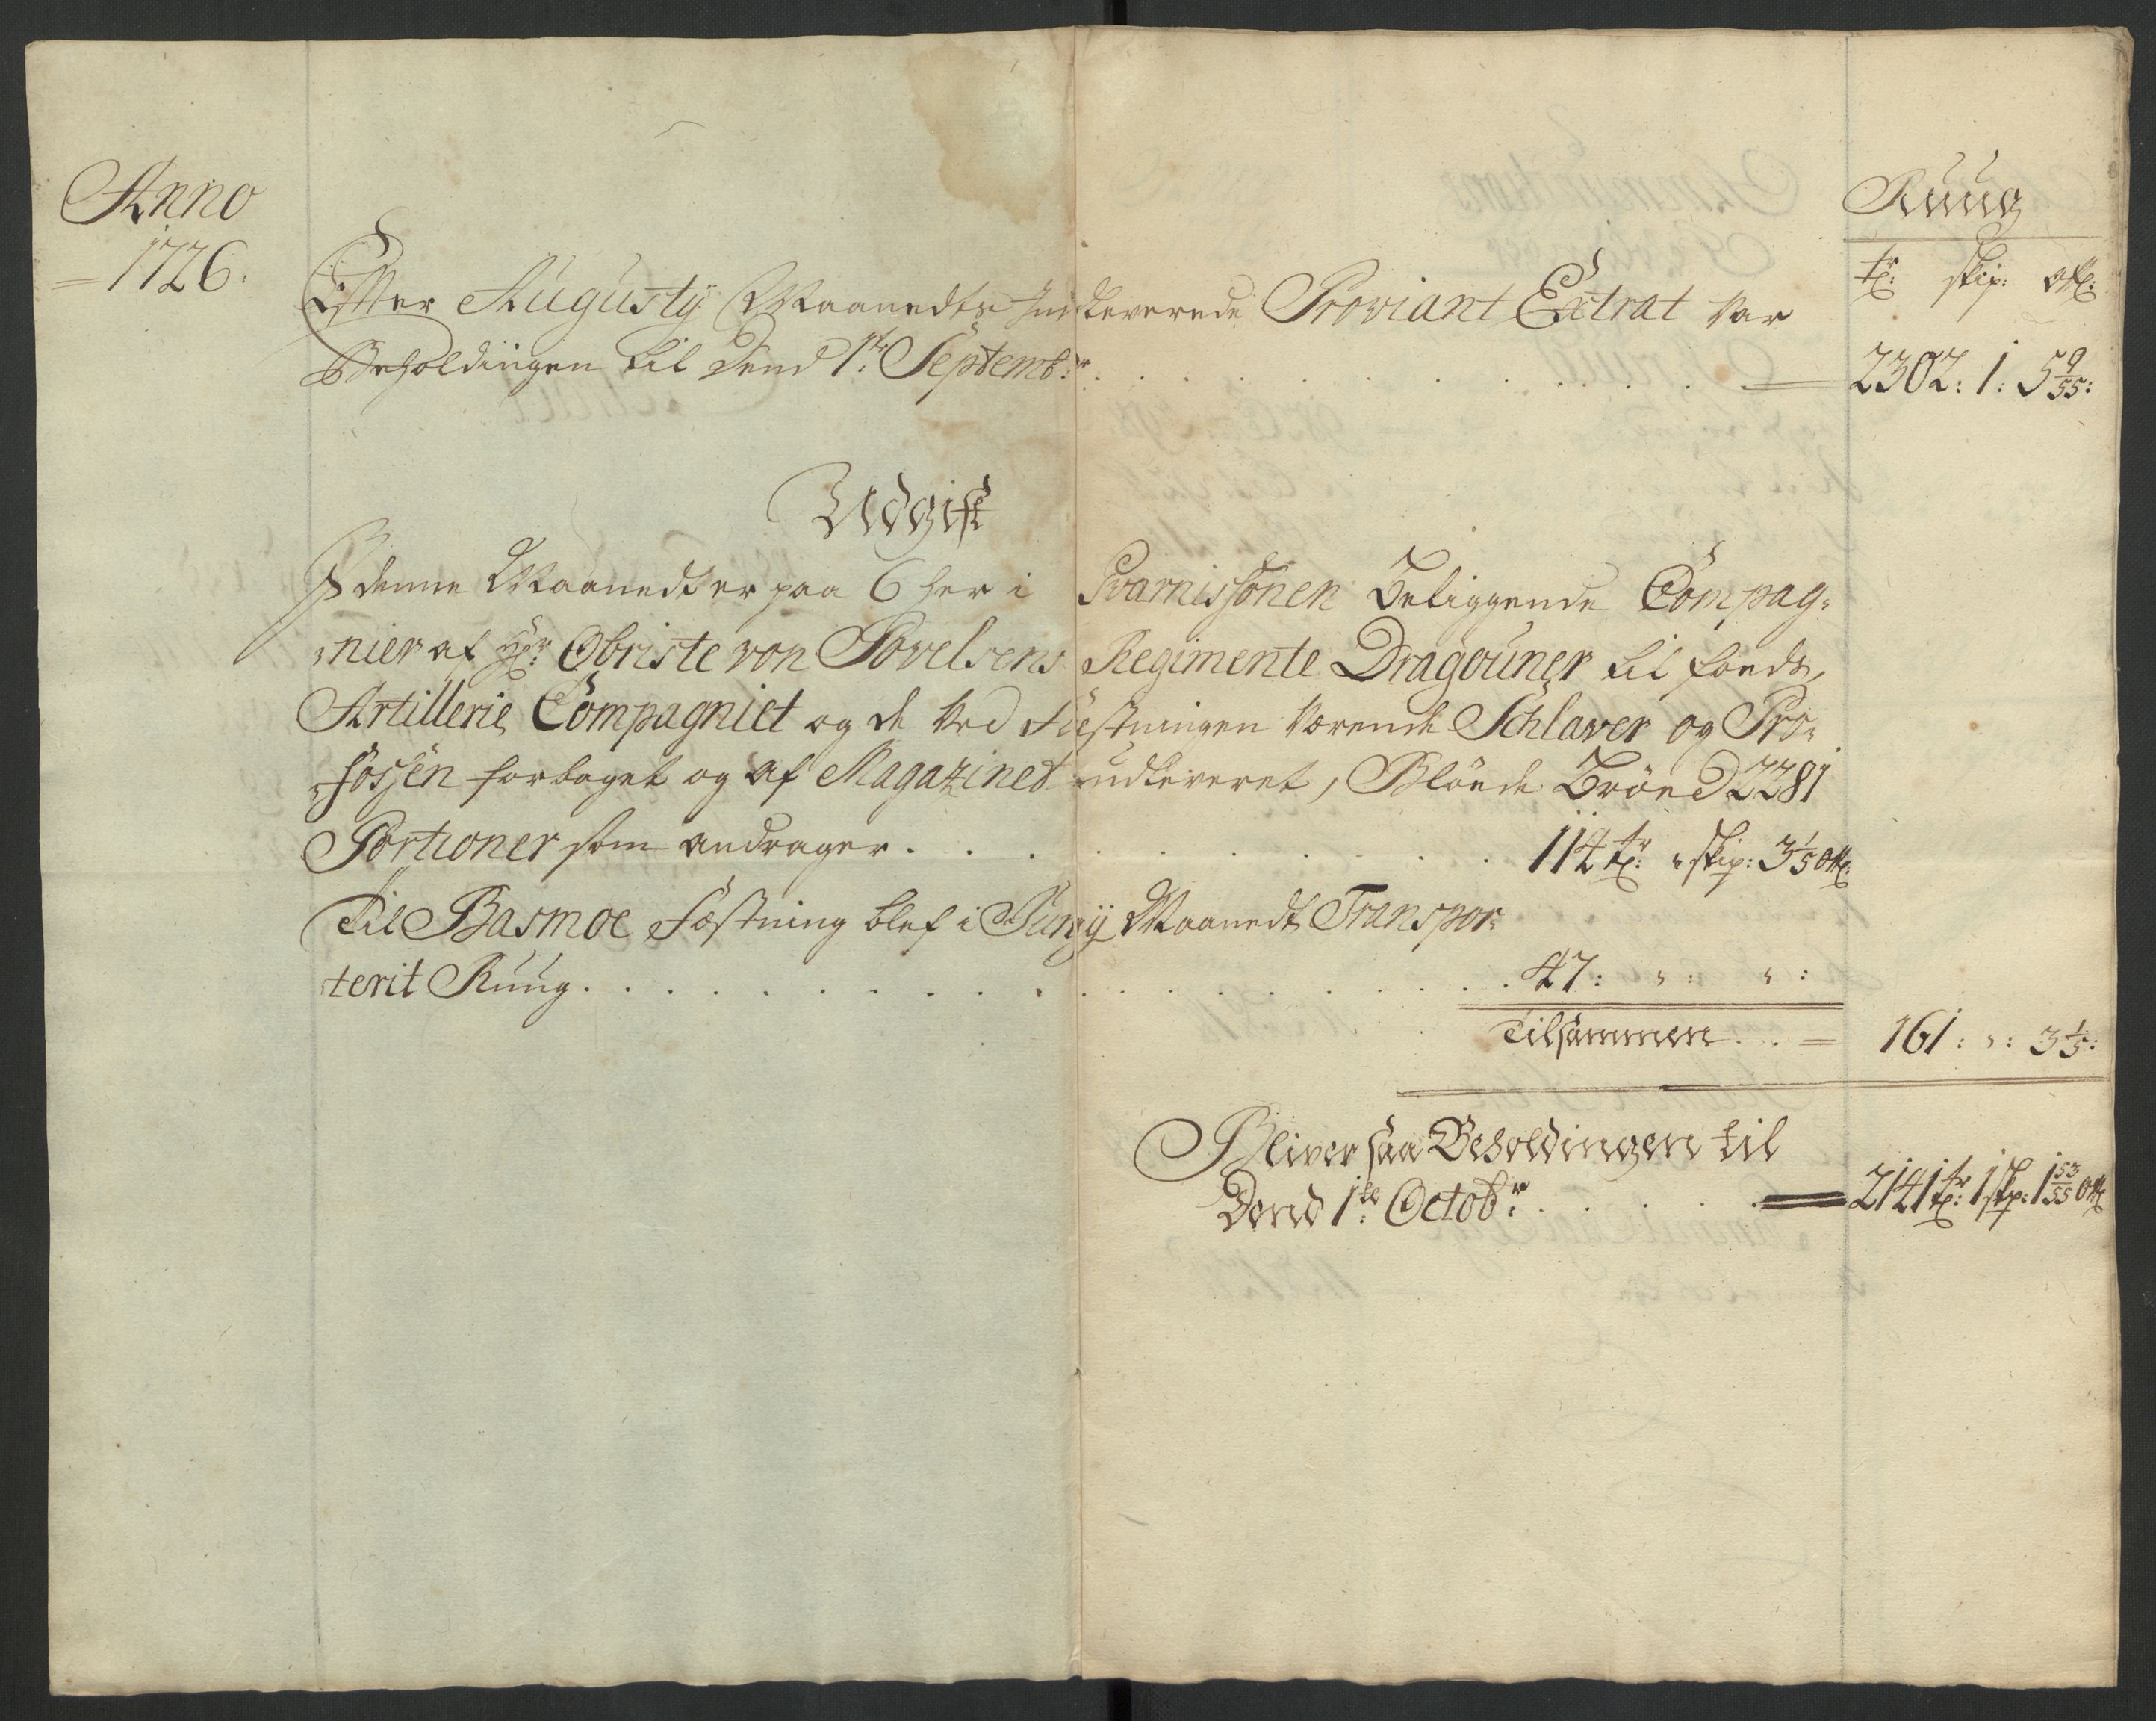 Anno
1726.
Ruug
tr: skip: ott:
Efter Augusty Maanedts Indleverede Proviant Extrat var
Beholdingen til dend 1te Septembr: . . . 2302: 1: 5 9/55:
Udgift
I denne Maanedt er paa 6 her i Gvarnissonen beliggende Compag-
nier af Hr: Obriste von Povelsens Regimente Dragouner til foeds,
Artillerie Compagniet og de ved Fæstningen værende Schlaver og Pro-
fossen forbaget og af Magazinet udleveret, Brød 2281
Portioner som andrager . . . 114 tr: " skip: 3 1/5 ott:
Til Basmoe Fæstning blef i Juny Maanedt Transpor-
terit Ruug . . . 47: " : " :
Tilsammen . . = 161: " : 3 1/5:
Bliver saa Beholdingen til
Dend 1te Octobr: . . . 2141 tr: 1 skp: 1 53/55 ott